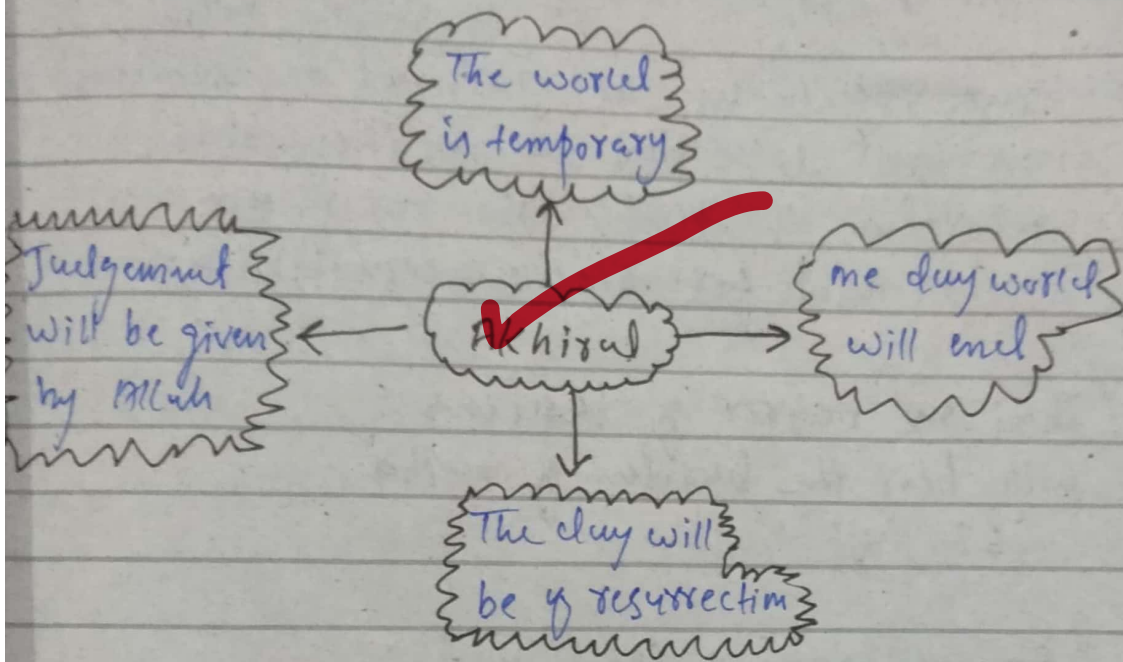 The world
is temporary
Judgement
will be given
by Allah
Akhirah
one day world
will end
The day will
be of resurrection